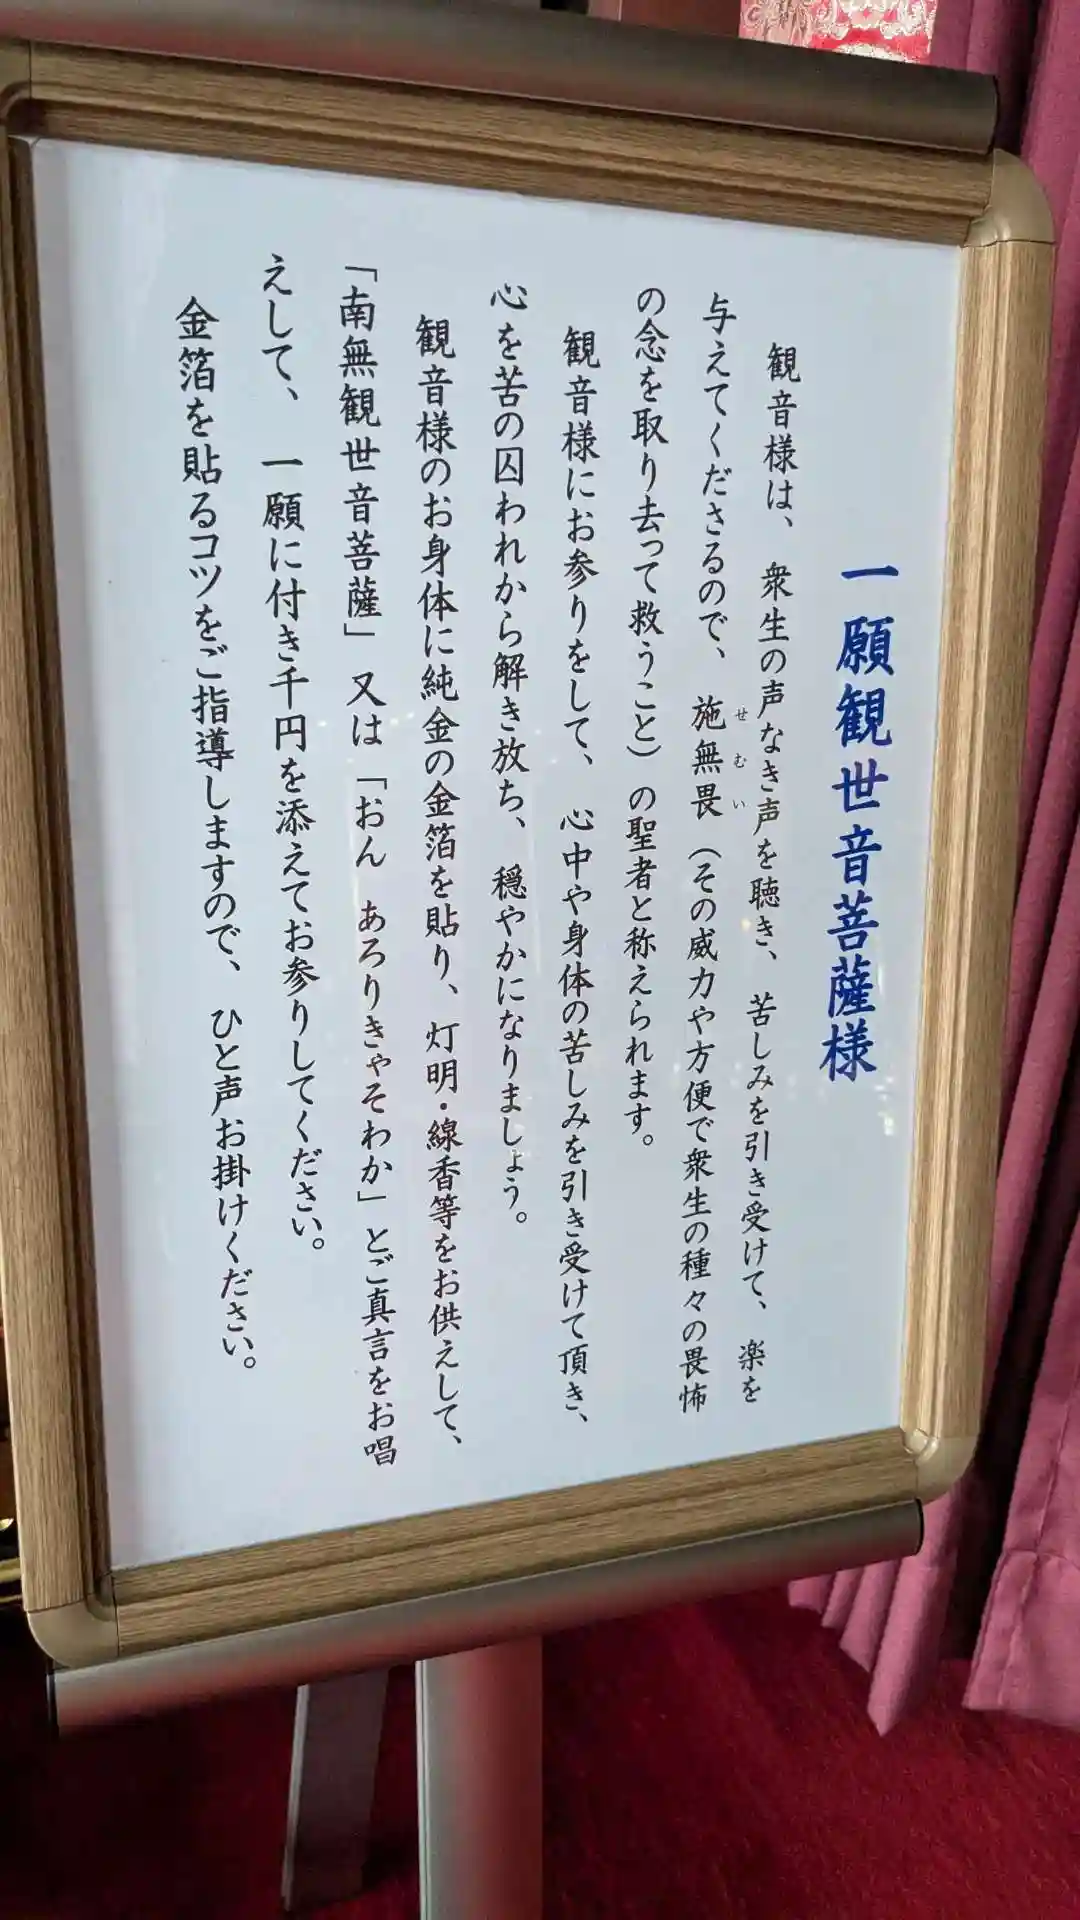 一願観世音菩薩様
観音様は、衆生の声なき声を聴き、苦しみを引き受けて、楽を
与えてくださるので、施無畏（その威力や方便で衆生の種々の畏怖
せむい
の念を取り去って救うこと）の聖者と称えられます。
観音様にお参りをして、心中や身体の苦しみを引き受けて頂き、
心を苦の囚われから解き放ち、穏やかになりましょう。
観音様のお身体に純金の金箔を貼り、灯明・線香等をお供えして、
「南無観世音菩薩」又は「おん あろりきゃそわか」とご真言をお唱
えして、一願に付き千円を添えてお参りしてください。
金箔を貼るコツをご指導しますので、ひと声お掛けください。